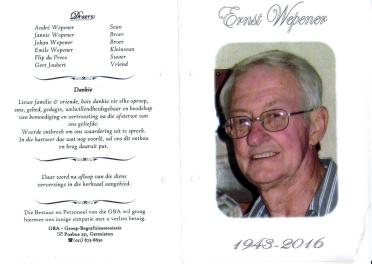 Draers:
André Wepener Seun
Jannie Wepener Broer
Johan Wepener Broer
Emile Wepener Kleinseun
Flip du Preez Swaer
Gert Joubert Vriend
Dankie
Liewe familie & vriende, baie dankie vir elke oproep,
sms, gebed, gedagte, welwillendheidsgebaar en boodskap
van bemoediging en vertroosting na die afsterwe van
ons geliefde.
Woorde ontbreek om ons waardering uit te spreek.
In die hartseer dae wat nog voorlê, sal ons dit onthou
en krag daaruit put.
Daar word na afloop van die diens
verversings in die kerksaal aangebied.
Die Bestuur en Personeel van die GBA wil graag
hiermee ons innige simpatie met u verlies betuig.
GBA - Groep-Begrafnisassosiasie
Posbus 231, Germiston
(011) 873-8850
Ernst Wepener
1943-2016